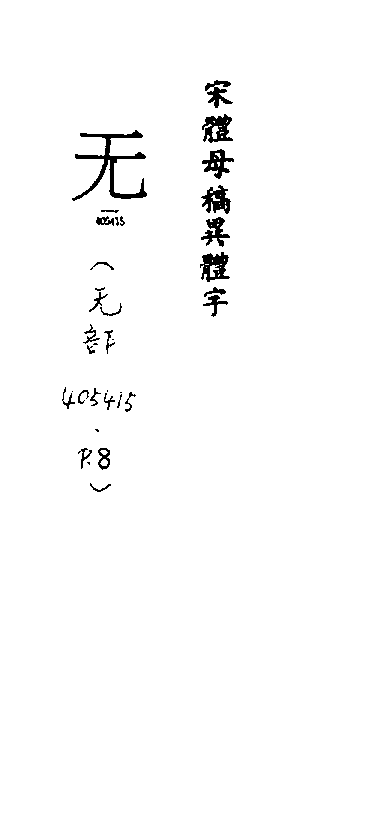 宋體母稿異體字
无
405415
（无部405415、P.8）